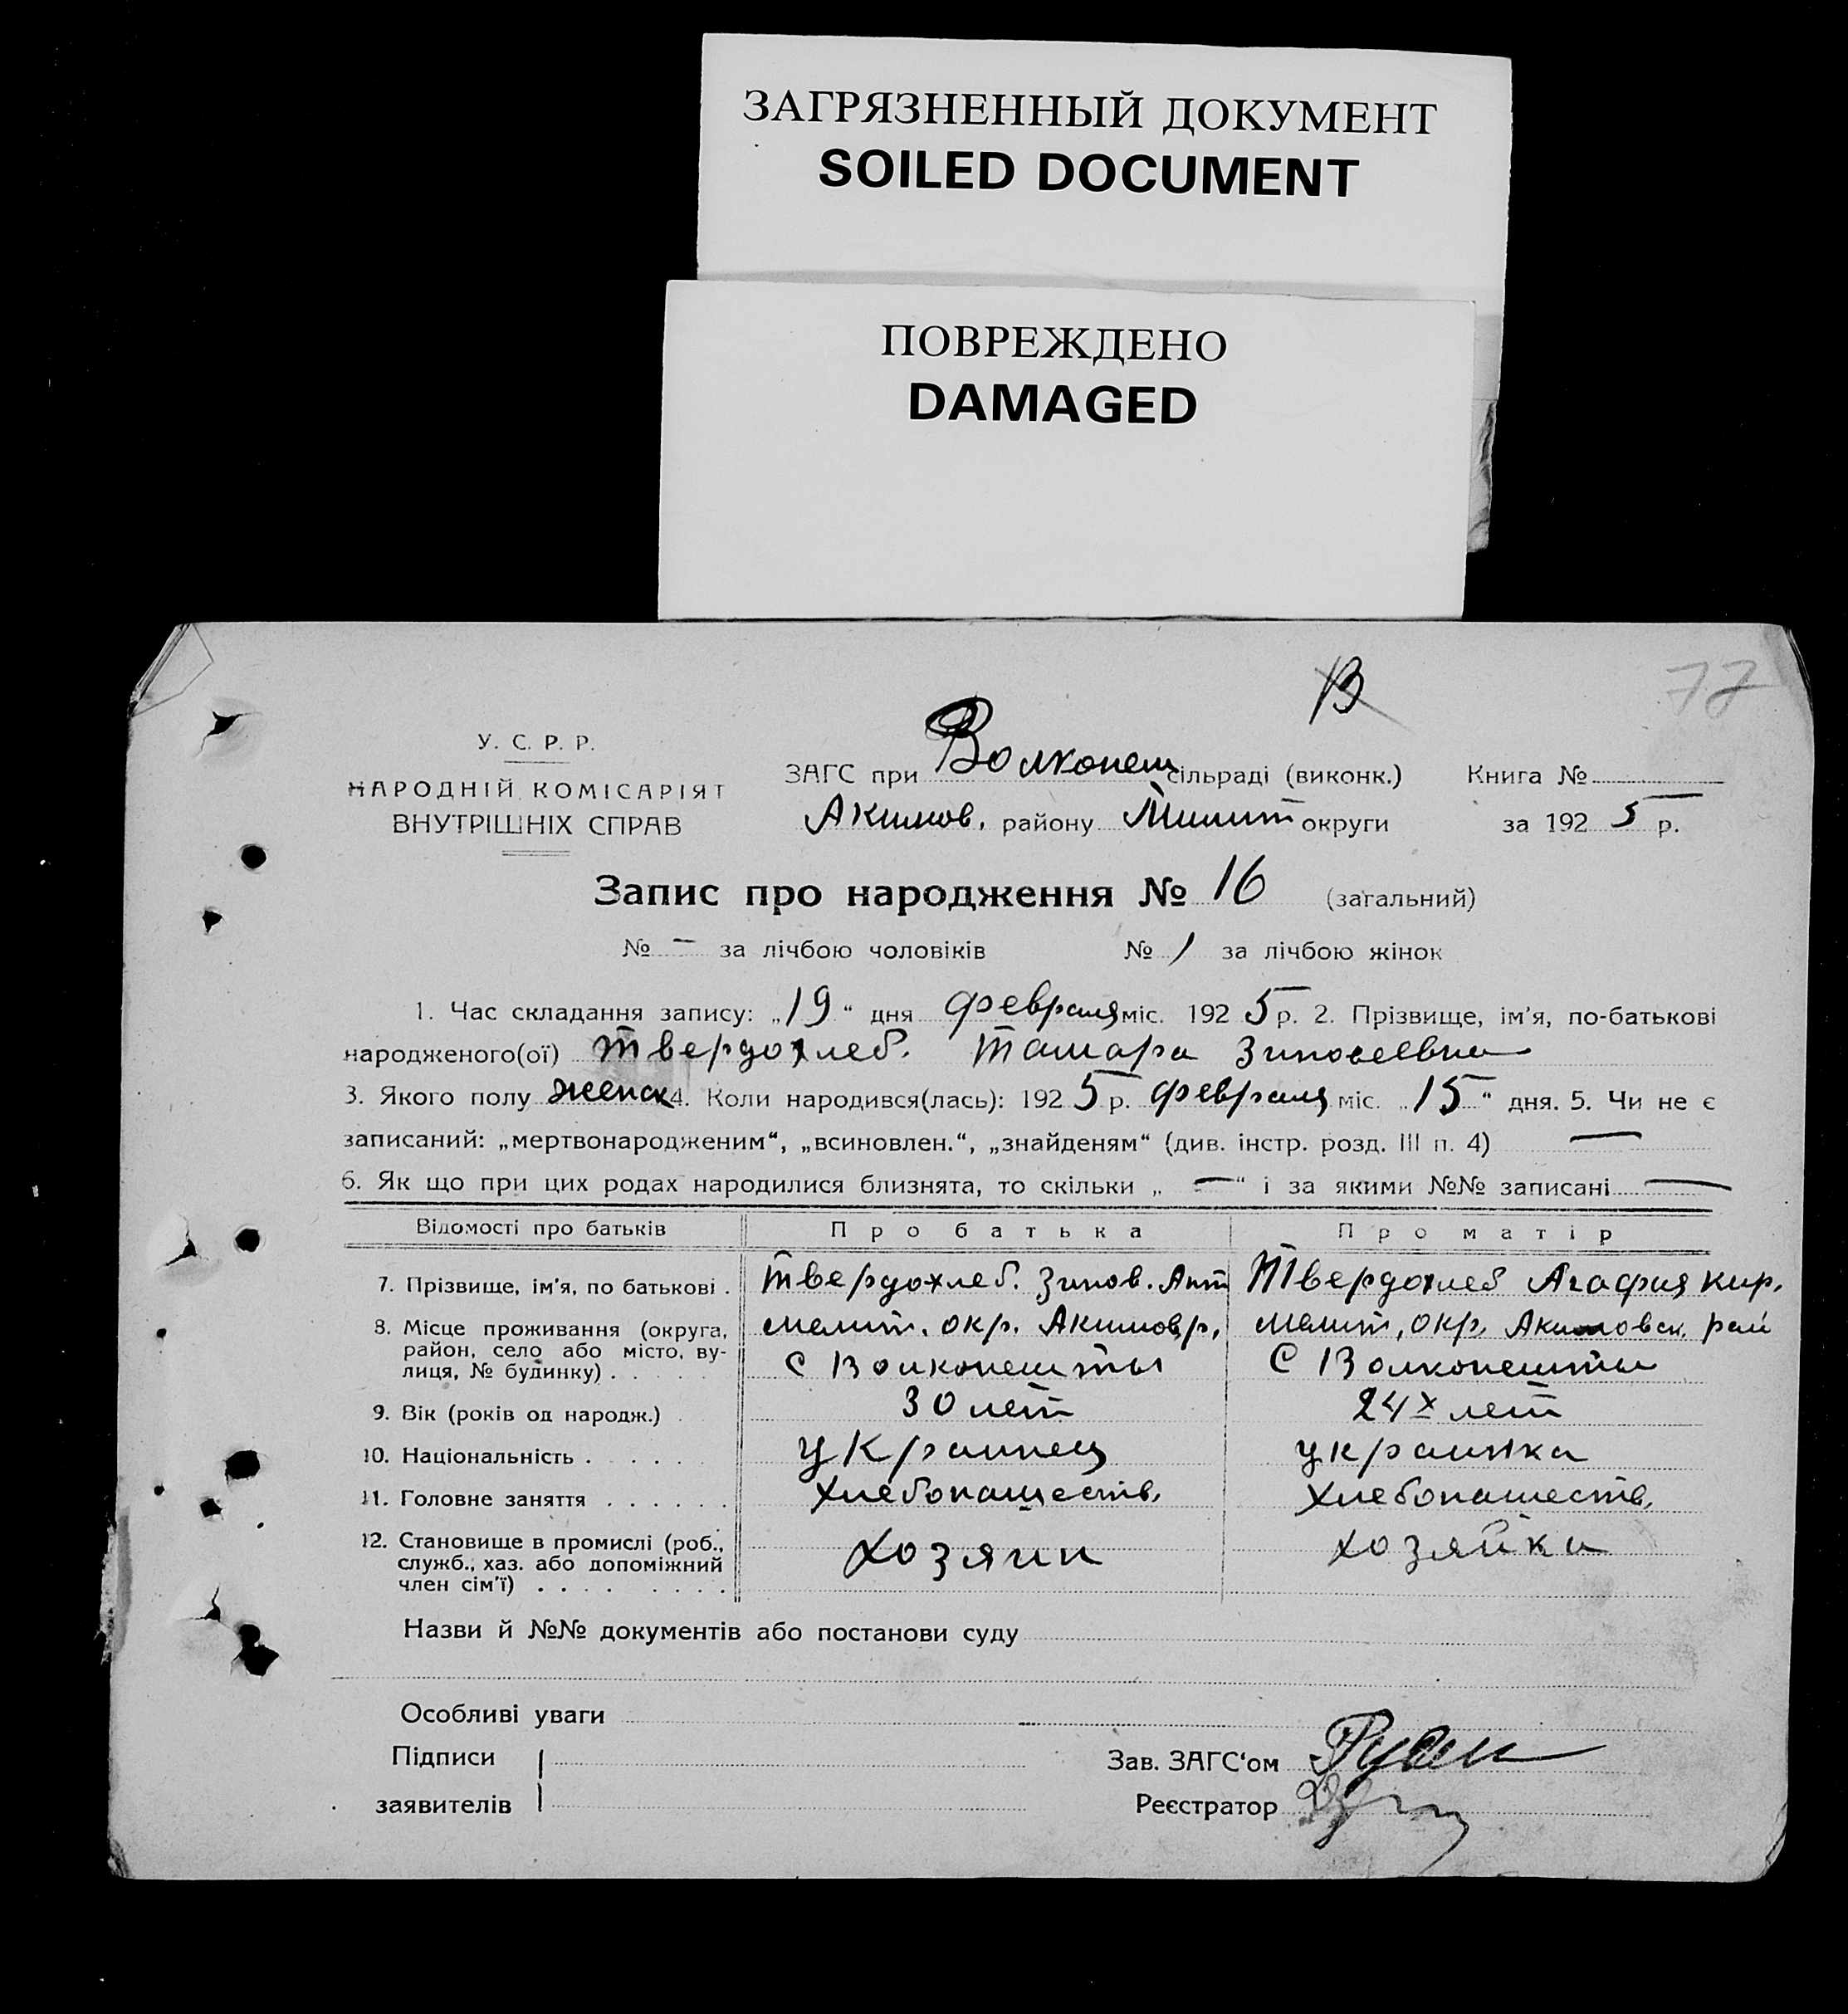 ЗАГРЯЗНЕННЫЙ ДОКУМЕНТ
SOILED DOCUMENT
ПОВРЕЖДЕНО
DAMAGED
В
77
У. С. Р. Р.
НАРОДНІЙ КОМІСАРІЯТ
ВНУТРІШНІХ СПРАВ
ЗАГС при Волконеш сільраді (виконк.) Книга №
Акимов. району Мелит округи за 1925 р.
Запис про народження № 16 (загальний)
№ - за лічбою чоловіків № 1 за лічбою жінок
1. Час складання запису: „19“ дня февраля міс. 1925 р. 2. Прізвище, ім'я, по-батькові
народженого(ої) Твердохлеб. Тамара Зиновеевна
3. Якого полу женск 4. Коли народився(лась): 1925 р. февраля міс. „15“ дня. 5. Чи не є
записаний: „мертвонародженим“, „всиновлен.“, „знайденям“ (див. інстр. розд. III п. 4) —
6. Як що при цих родах народилися близнята, то скільки „—“ і за якими №№ записані —
Відомості про батьків Про батька Про матір
7. Прізвище, ім'я, по батькові . Твердохлеб. Зинов. Ант Твердохлеб Агафия Кир.
8. Місце проживання (округа, мелит. окр. Акимов р, мелит, окр, Акимовск. рай
район, село або місто, ву-
лиця, № будинку) . . . . . с Волконешты с Волконешты
9. Вік (років од народж.) . 30 лет 24х лет
10. Національність . . . . . . украинец украинка
11. Головне заняття . . . . . . хлебопашеств, хлебопашеств,
12. Становище в промислі (роб., хозяин хозяйка
служб., хаз. або допоміжний
член сім'ї) . . . . . . . .
Назви й №№ документів або постанови суду
Особливі уваги
Підписи
заявителів
Зав. ЗАГС'ом
Реєстратор